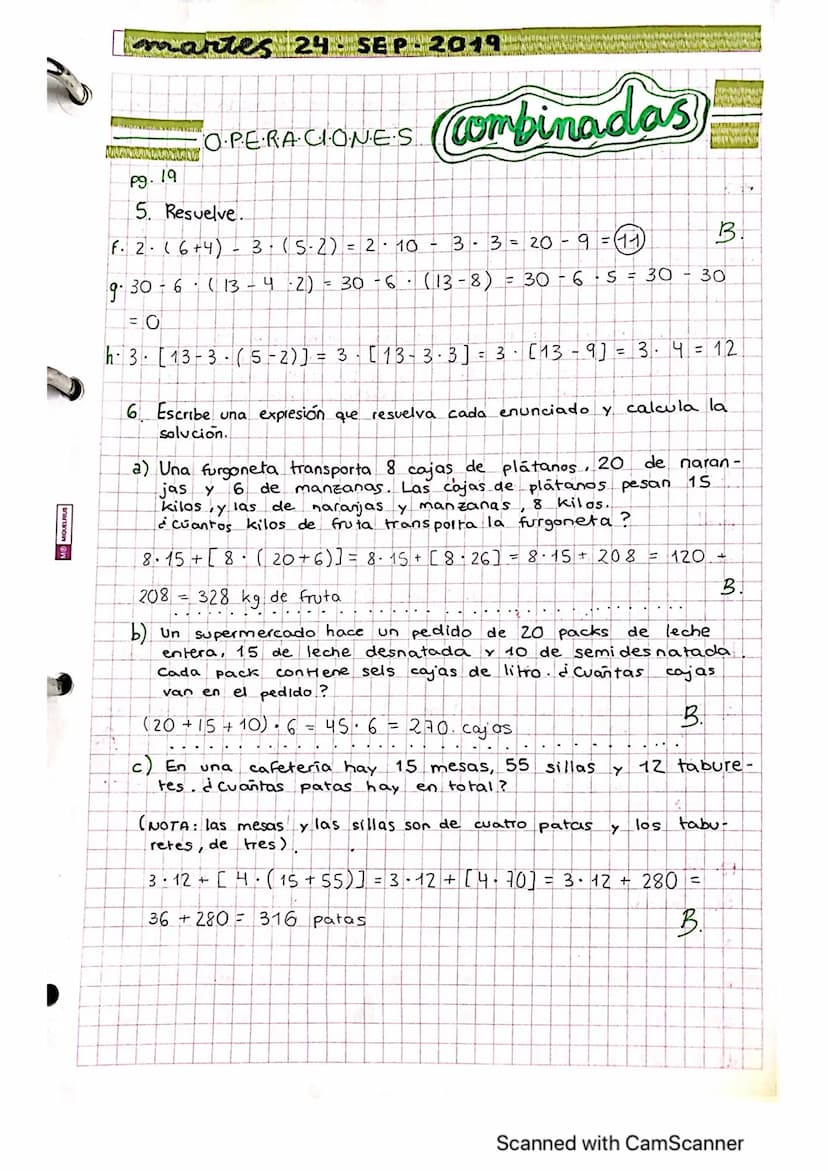 martes 24 - SEP - 2019
O·P·E·R·A·C·I·O·N·E·S combinadas
pg. 19
5. Resuelve.
f. 2 · (6+4) - 3 · (5-2) = 2 · 10 - 3 · 3 = 20 - 9 = 11 B.
g. 30 - 6 · (13 - 4 · 2) = 30 - 6 · (13 - 8) = 30 - 6 · 5 = 30 - 30
= 0
h. 3 · [13 - 3 · (5 - 2)] = 3 · [13 - 3 · 3] = 3 · [13 - 9] = 3 · 4 = 12
6. Escribe una expresión que resuelva cada enunciado y calcula la
solución.
a) Una furgoneta transporta 8 cajas de plátanos, 20 de naran-
jas y 6 de manzanas. Las cajas de plátanos pesan 15
kilos, y las de naranjas y manzanas, 8 kilos.
¿cuántos kilos de fruta transporta la furgoneta?
8 · 15 + [8 · (20+6)] = 8 · 15 + [8 · 26] = 8 · 15 + 208 = 120 +
208 = 328 kg de fruta B.
b) Un supermercado hace un pedido de 20 packs de leche
entera, 15 de leche desnatada y 10 de semidesnatada.
Cada pack contiene seis cajas de litro. ¿Cuántas cajas
van en el pedido?
(20 + 15 + 10) · 6 = 45 · 6 = 270. cajas B.
c) En una cafetería hay 15 mesas, 55 sillas y 12 tabure-
tes. ¿Cuántas patas hay en total?
(NOTA: las mesas y las sillas son de cuatro patas y los tabu-
retes, de tres).
3 · 12 + [4 · (15 + 55)] = 3 · 12 + [4 · 70] = 3 · 12 + 280 =
36 + 280 = 316 patas B.
MIQUELRIUS
Scanned with CamScanner